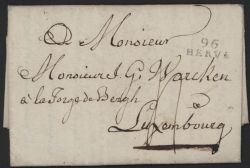 A Monsieur
96
HERVE
Monsieur J. G. Warcken
à la forge de Bergh
a
Luxembourg